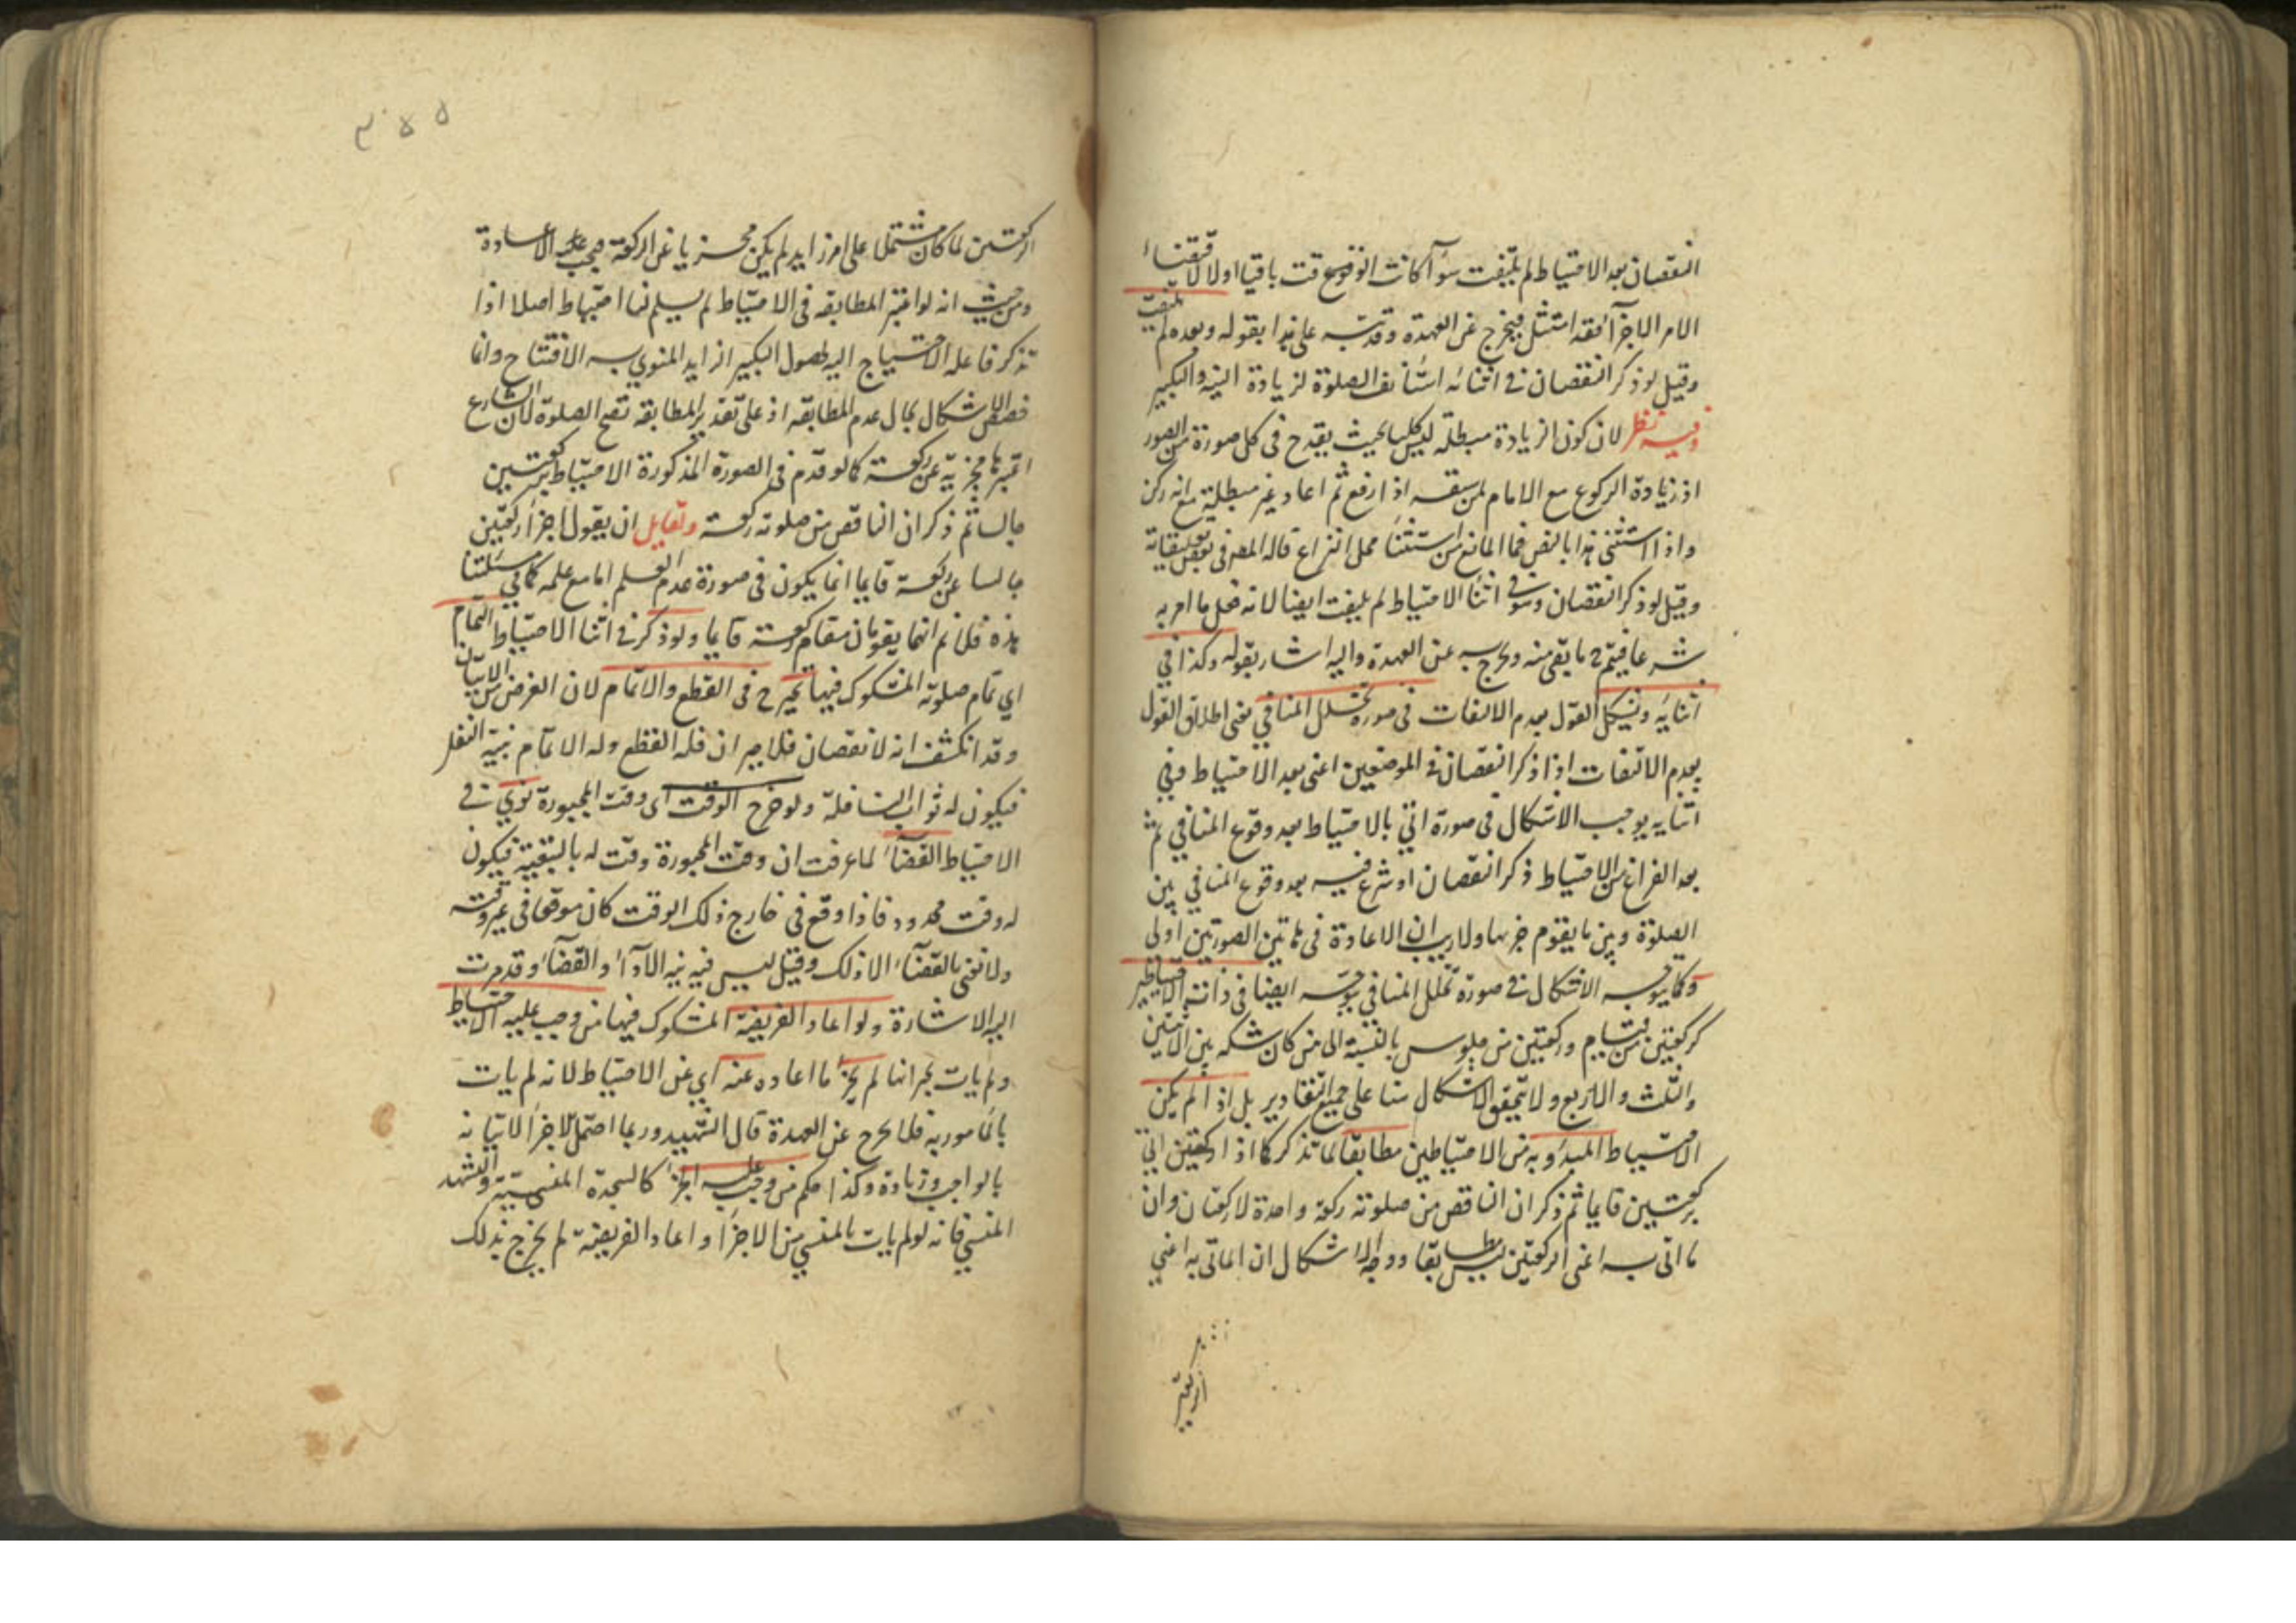 النقصان بعد الاحتياط لم يلتفت سوآ كانت الوقت باقيا اولا لاقتضاء
الامر الاجزآ فقد امتثل فيخرج عن العهدة وقد نبه على هذا بقوله وبعده لم يلتفت
وقيل لو ذكر النقصان في اثنائه استأنف الصلوة لزيادة النية والتكبير
وفيه نظر لان كون الزيادة مبطلة ليس كليا بحيث يقدح في كل صورة من الصور
اذ زيادة الركوع مع الامام لمن سبقه اذا رفع ثم اعاد غير مبطلة مع انه ركن
واذا استثنى هذا بالنص فما المانع من استثنآ محل النزاع قاله المصر في بعض تعليقاته
وقيل لو ذكر النقصان وهو في اثنآ الاحتياط لم يلتفت ايضا لانه فعل ما امر به
شرعا فيتم ما بقي منه ويخرج به عن العهدة واليه اشار بقوله وكذا في
اثنايه ويشكل القول بعدم الالتفات في صورة تخلل المنافي يعني اطلاق القول
بعدم الالتفات اذا ذكر النقصان في الموضعين اعني بعد الاحتياط وفي
اثنايه يوجب الاشكال في صورة اتي بالاحتياط بعد وقوع المنافي ثم
بعد الفراغ من الاحتياط ذكر النقصان او شرع فيه بعد وقوع المنافي بين
الصلوة وبين ما يقوم جزها ولا ريب ان الاعادة في هاتين الصورتين اولى
وكما يتوجه الاشكال في صورة تخلل المنافي يتوجه ايضا في ذات الاحتياطين
كركعتين من قيام وركعتين من جلوس بالنسبة الى من كان شكه بين الاثنتين
والثلث والاربع ولا يتحقق الاشكال هنا على جميع التقادير بل اذا لم يكن
الاحتياط المبدوء به من الاحتياطين مطابقا لما تذكر كما اذا اتي
بركعتين قايما ثم ذكر ان الناقص من صلوته ركعة واحدة لا ركعتان وان
ما اتى به اعني الركعتين ليس مطابقا ووجه الاشكال ان الماتي به اعني
الركعتين
٣٥٥
الركعتين لما كان مشتملا على امر زايد لم يكن مجزيا عن الركعة فيجب عليه الاعادة
ومن حيث انه لو اعتبر المطابقة في الاحتياط لم يسلم لنا احتياط اصلا اذا
تذكر فاعله الاحتياج اليه لحصول التكبير الزايد المنوي به الافتتاح وانما
خصص الاشكال بحال عدم المطابقة اذ على تقدير المطابقة تصح الصلوة لان الشارع
اعتبرها مجزية عن ركعة كما لو قدم في الصورة المذكورة الاحتياط بركعتين
جالسا ثم ذكر ان الناقص من صلوته ركعة ولقايل ان يقول اجزآ ركعتين
جالسا عن ركعة قايما انما يكون في صورة عدم العلم اما مع علمه كما في مسئلتنا
هذه فلا نم انهما يقومان مقام ركعة قايما ولو ذكر في اثنآ الاحتياط التمام
اي تمام صلوته المشكوك فيها تخير في القطع والاتمام لان الغرض من الاتيان
وقد انكشف انه لا نقصان فلا جبران فله القطع وله الاتمام بنية النفل
فيكون له ثواب النافلة ولو خرج الوقت اي وقت المجبورة نوى في
الاحتياط القضآ لما عرفت ان وقت المجبورة وقت له بالتبعية فيكون
له وقت محدود فاذا وقع في خارج ذلك الوقت كان موقعا في غير وقته
ولا نعني بالقضآء الا ذلك وقيل ليس فيه نية الادآء والقضآء وقد مرت
اليه الاشارة ولو اعاد الفريضة المشكوك فيها من وجب عليه الاحتياط
ولم يات بجبرانها لم يجز ما اعاده عنه اي عن الاحتياط لانه لم يات
بالمامور به فلا يخرج عن العهدة قال الشهيد وربما احتمل الاجزآ لاتيانه
بالواجب وزيادة وكذا حكم من وجب عليه الجزء كالسجدة المنسية والتشهد
المنسي فانه لو لم يات بالمنسي من الاجزآ واعاد الفريضة لم يخرج بذلك